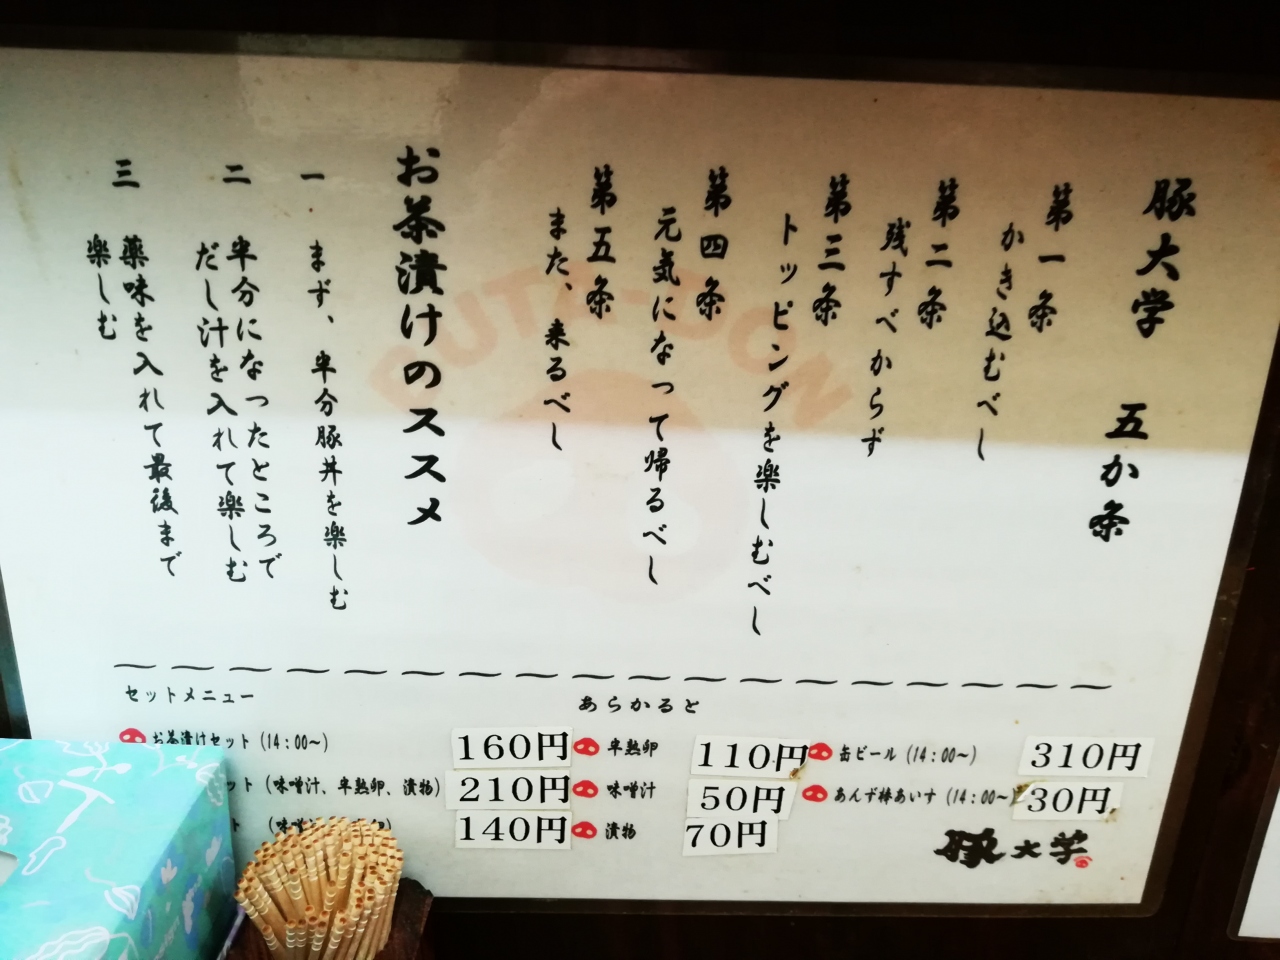 豚大学 五か条
第一条
かき込むべし
第二条
残すべからず
第三条
トッピングを楽しむべし
第四条
元気になって帰るべし
第五条
また、来るべし
お茶漬けのススメ
一 まず、半分豚丼を楽しむ
二 半分になったところで
だし汁を入れて楽しむ
三 薬味を入れて最後まで
楽しむ
BUTA-DON
セットメニュー
お茶漬けセット (14:00~) 160円
ット (味噌汁、半熟卵、漬物) 210円
ト (味噌 卵) 140円
あらかると
半熟卵 110円
味噌汁 50円
漬物 70円
缶ビール (14:00~) 310円
あんず棒あいす (14:00~ 30円
豚大学